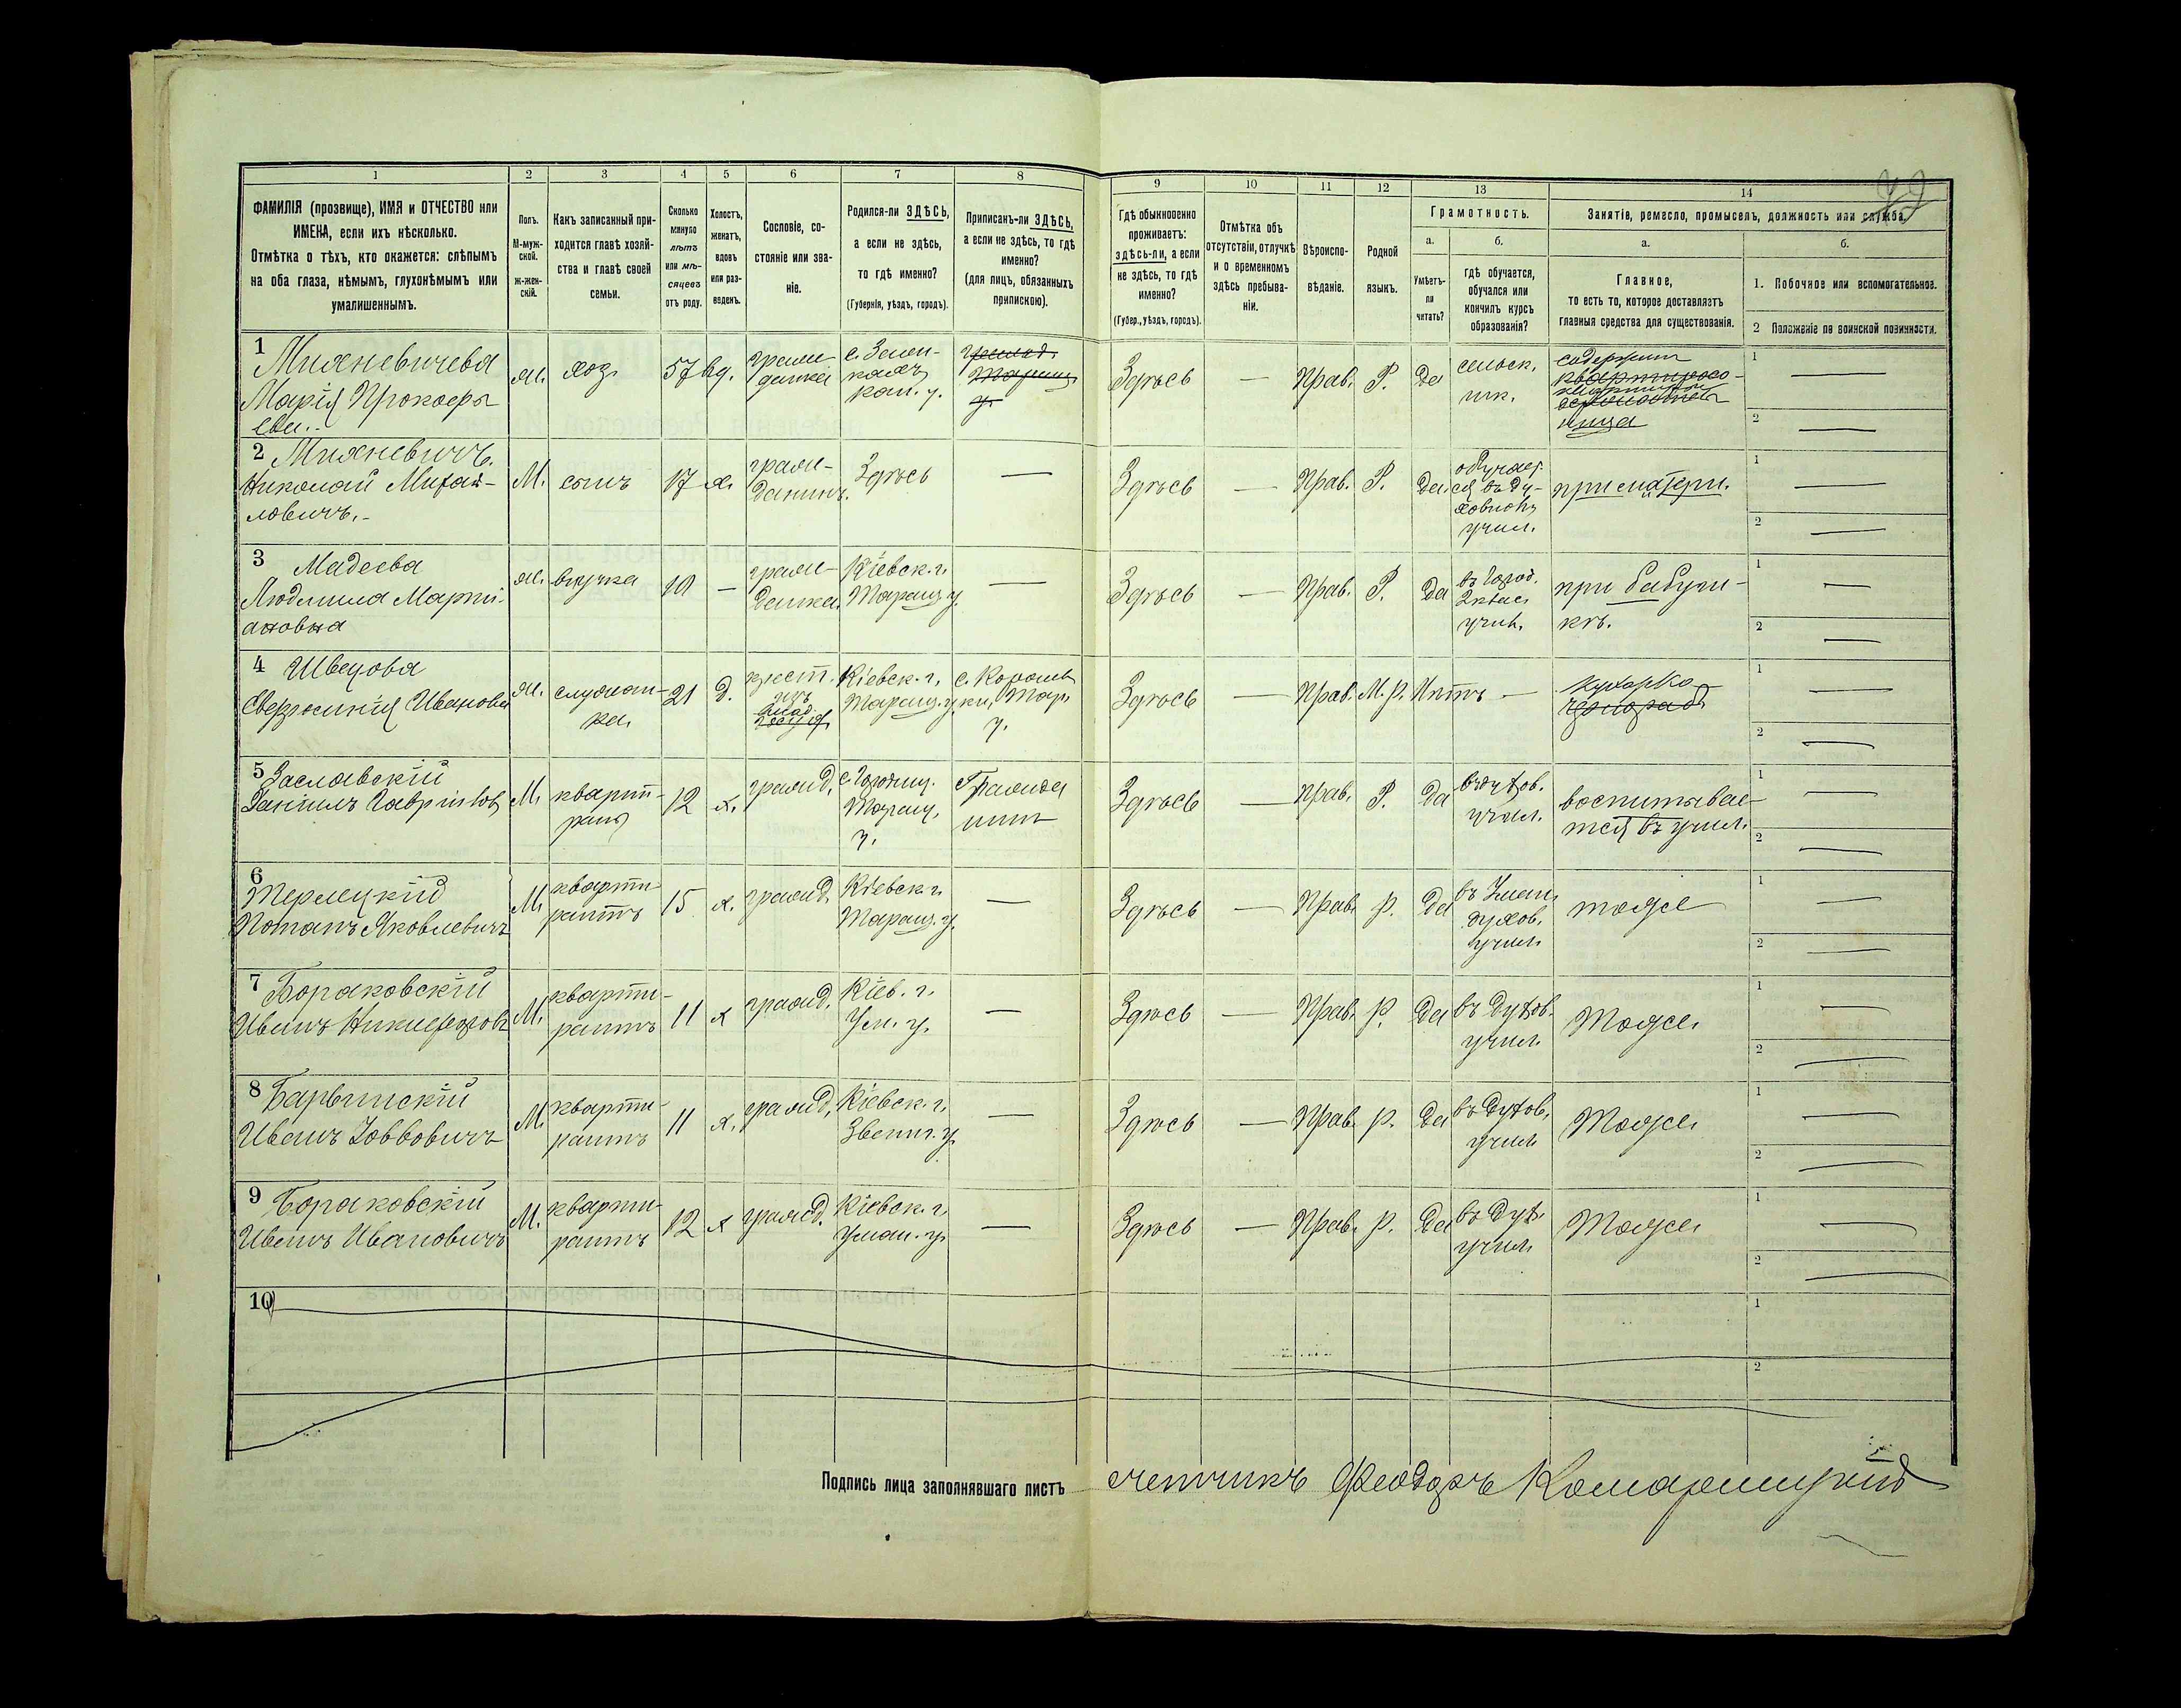 1 2 3 4 5 6 7 8 9 10 11 12 13 14
ФАМИЛІЯ (прозвище), ИМЯ и ОТЧЕСТВО или
ИМЕНА, если ихъ нѣсколько.
Отмѣтка о тѣхъ, кто окажется: слѣпымъ
на оба глаза, нѣмымъ, глухонѣмымъ или
умалишеннымъ.
Полъ.
М-муж-
ской.
ж-жен-
скій.
Какъ записанный при-
ходится главѣ хозяй-
ства и главѣ своей
семьи.
Сколько
минуло
лѣтъ
или мѣ-
сяцевъ
отъ роду.
Холостъ,
женатъ,
вдовъ
или раз-
веденъ.
Сословіе, со-
стояніе или зва-
ніе.
Родился-ли ЗДѢСЬ,
а если не здѣсь,
то гдѣ именно?
(Губернія, уѣздъ, городъ).
Приписанъ-ли ЗДѢСЬ,
а если не здѣсь, то гдѣ
именно?
(для лицъ, обязанныхъ
припискою).
Гдѣ обыкновенно
проживаетъ:
здѣсь-ли, а если
не здѣсь, то гдѣ
именно?
(Губер., уѣздъ, городъ).
Отмѣтка объ
отсутствіи, отлучкѣ
и о временномъ
здѣсь пребыва-
ніи.
Вѣроиспо-
вѣданіе.
Родной
языкъ.
Грамотность.
а.
Умѣетъ-
ли
читать?
б.
Гдѣ обучается,
обучался или
кончилъ курсъ
образованія?
Занятіе, ремесло, промыселъ, должность или служба.
а.
Главное,
то есть то, которое доставляетъ
главныя средства для существованія.
б.
1. Побочное или вспомогательное.
2 Положеніе по воинской повинности.
1
Михневичева
Марія Прокофь
ева.
ж. хоз. 57 вд.
Здѣсь — Прав. Р. да
содержит
1 —
2 —
2 Михневичъ.
Николай Михай-
ловичъ.
М. сынъ 17 х.
граж-
данинъ.
Здѣсь —
Здѣсь — Прав. Р. да
обучает-
ся въ ду-
ховномъ
учил.
при матери.
1 —
2 —
3 Мадеева
Людмила Марти-
ановна
ж. внучка 10 —
граж-
данка.
Кіевск. г.
Таращ. у.
—
Здѣсь — Прав. Р. да
въ Город.
2 клас.
учил.
при бабуш-
кѣ.
1 —
2 —
4 Швецова
Евфросинія Иванова
ж. служан-
ка.
21 д.
крест.
Кіевск. г.
Таращ. у.
Здѣсь — Прав. М. р. Нѣтъ —
кухарка
1 —
2 —
5 Заславскій
Даніилъ Гавріилов
М. кварт-
рантъ
12 х. гражд.
Таращ.
у.
Здѣсь — Прав. Р. да
въ духов.
учил.
воспитывае-
тся въ учил.
1 —
2 —
6
Терлецкій
Потапъ Яковлевичъ
М. кварти-
рантъ
15 х. гражд.
Кіевск. г.
Таращ. у.
—
Здѣсь — Прав. р. да
въ Уман.
духов.
учил.
тоже
1 —
2 —
7 Бораковскій
Иванъ Никифоров
М. кварти-
рантъ
11 х гражд.
Кіев. г.
Ум. у.
—
Здѣсь — Прав. р. да
въ Духов.
учил.
Тоже.
1 —
2 —
8 Барвинскій
Иванъ Іоввовичъ
М. кварти-
рантъ
11 х. гражд.
Кіевск. г.
Звениг. у.
—
Здѣсь — Прав. р. да
въ Духов.
учил.
Тоже.
1 —
2 —
9 Бораковскій
Иванъ Ивановичъ
М. кварти-
рантъ
12 х гражд.
Кіевск. г.
Уман. у.
—
Здѣсь — Прав. р. да
въ Дух.
учил.
Тоже.
1 —
2 —
10
1
2
Подпись лица заполнявшаго листъ счетчикъ Феодоръ Комарницкій